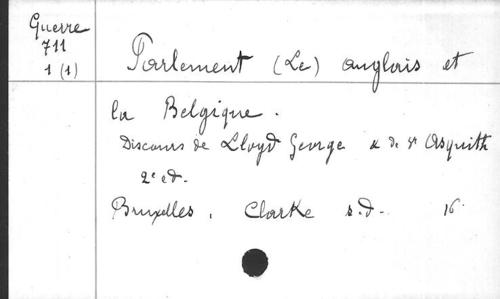 Guerre
711
1 (1)
Parlement (Le) anglais et
la Belgique.
Discours de Lloyd George & de Mr Asquith
2e ed.
Bruxelles, Clarke s.d. 16